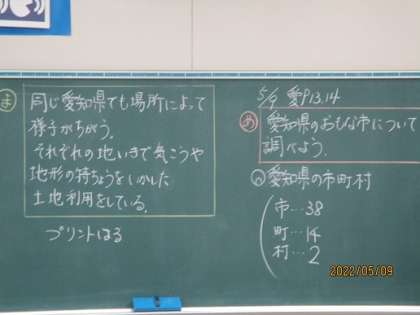 5/9 愛P13.14
め
愛知県のおもな市について
調べよう。
愛知県の市町村
市…38
町…14
村…2
ま
同じ愛知県でも場所によって
様子がちがう。
それぞれの地いきで気こうや
地形の特ちょうをいかした
土地利用をしている。
プリントはる
2022/05/09